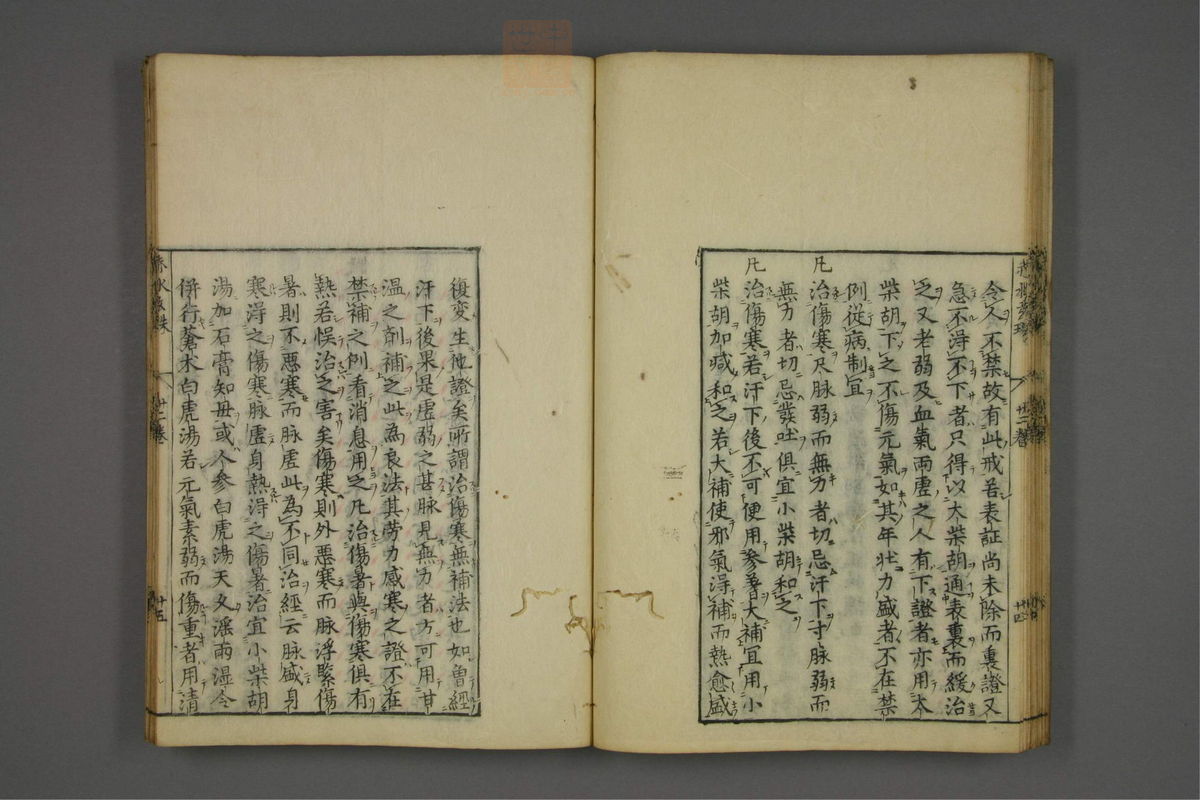 令人不禁故有此戒若表証尚未除而裏證又
急不得不下者只得以大柴胡通表裏而緩治
之又老弱及血氣兩虚之人有下證者亦用大
柴胡下之不傷元氣如其年壯力盛者不在禁
例從病制宜
凡治傷寒尺脉弱而無力者切忌汗下寸脉弱而
無力者切忌發吐俱宜小柴胡和之
凡治傷寒若汗下後不可便用參蓍大補宜用小
柴胡加減和之若大補使邪氣得補而熱愈盛
復変生他證矣所謂治傷寒無補法也如曽經
汗下後果是虚弱之甚脉見無力者方可用甘
温之剤補之此為良法其労力感寒之證不在
禁補之例看消息用之凡治傷暑與傷寒俱有
熱若悮治之害矣傷寒則外惡寒而脉浮緊傷
暑則不惡寒而脉虚此為不同治經云脉盛身
寒得之傷寒脉虚身熱得之傷暑治宜小柴胡
湯加石膏知毋或人参白虎湯天久淫雨湿令
併行蒼朮白虎湯若元氣素弱而傷重者用清
廿二巻
廿五